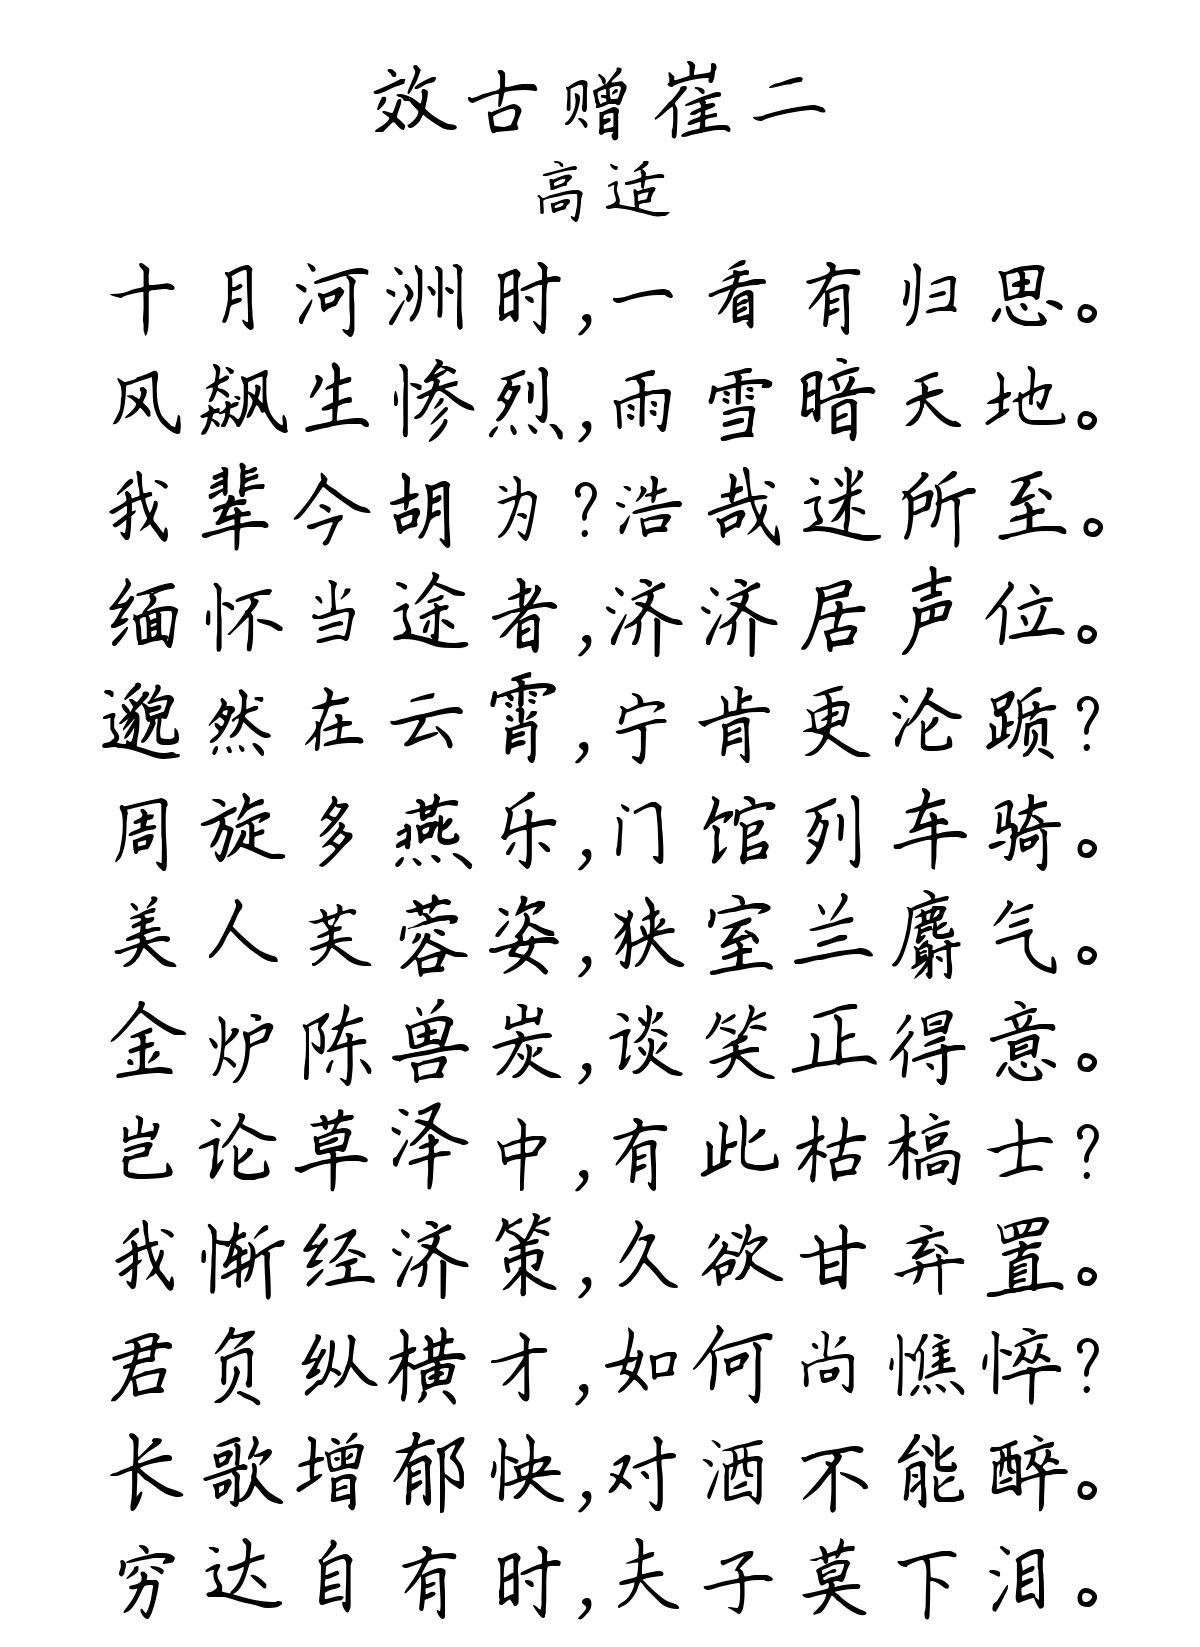 效古赠崔二
高适
十月河洲时,一看有归思。
风飙生惨烈,雨雪暗天地。
我辈今胡为?浩哉迷所至。
缅怀当途者,济济居声位。
邈然在云霄,宁肯更沦踬?
周旋多燕乐,门馆列车骑。
美人芙蓉姿,狭室兰麝气。
金炉陈兽炭,谈笑正得意。
岂论草泽中,有此枯槁士?
我惭经济策,久欲甘弃置。
君负纵横才,如何尚憔悴?
长歌增郁怏,对酒不能醉。
穷达自有时,夫子莫下泪。